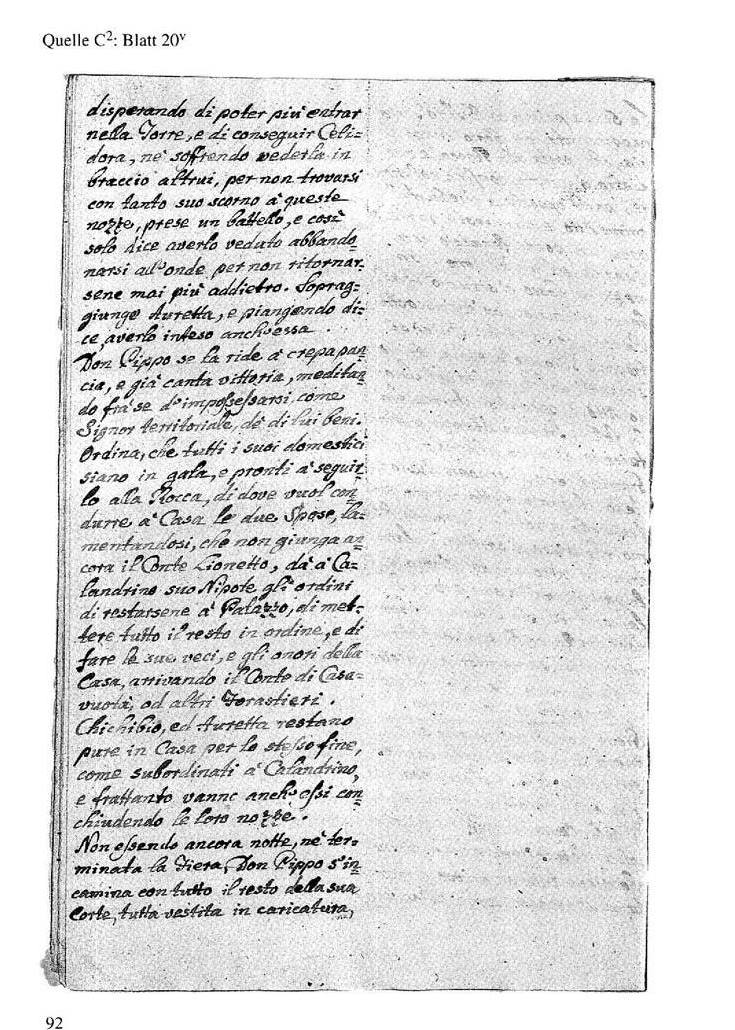 Quelle C²: Blatt 20ᵛ
disperando di poter più entrar
nella Torre, e di conseguir Celi=
dora, nè soffrendo vederla in
braccio altrui, per non trovarsi
con tanto suo scorno à queste
nozze, prese un battello, e così
solo dice averlo veduto abbando=
narsi all'onde per non ritornar=
sene mai più addietro. Soprag=
giunge Auretta, e piangendo di=
ce, averlo inteso anch'essa.
Don Pippo se la ride à crepapan=
cia, e già canta vittoria, meditan=
do frà se d'impossessarsi come
Signor territoriale, dè di lui beni.
Ordina, che tutti i suoi domestici
siano in gala, e pronti à seguir=
lo alla Rocca, di dove vuol con=
durre à Casa le due Spose, la=
mentandosi, che non giunga an=
cora il Conte Lionetto, dà à Ca=
landrino suo Nipote gli ordini
di restarsene à Palazzo, di met=
tere tutto il resto in ordine, e di
fare le sue veci, e gli onori della
Casa, arrivando il Conte di Casa=
vuota, od altri Forastieri.
Chichibio, ed Auretta restano
pure in Casa per lo stesso fine,
come subordinati à Calandrino,
e frattanto vanno anch'essi con=
chiudendo le loro nozze.
Non essendo ancora notte, nè ter=
minata la Fiera, Don Pippo s'in=
camina con tutto il resto della sua
Corte, tutta vestita in caricatura,
92